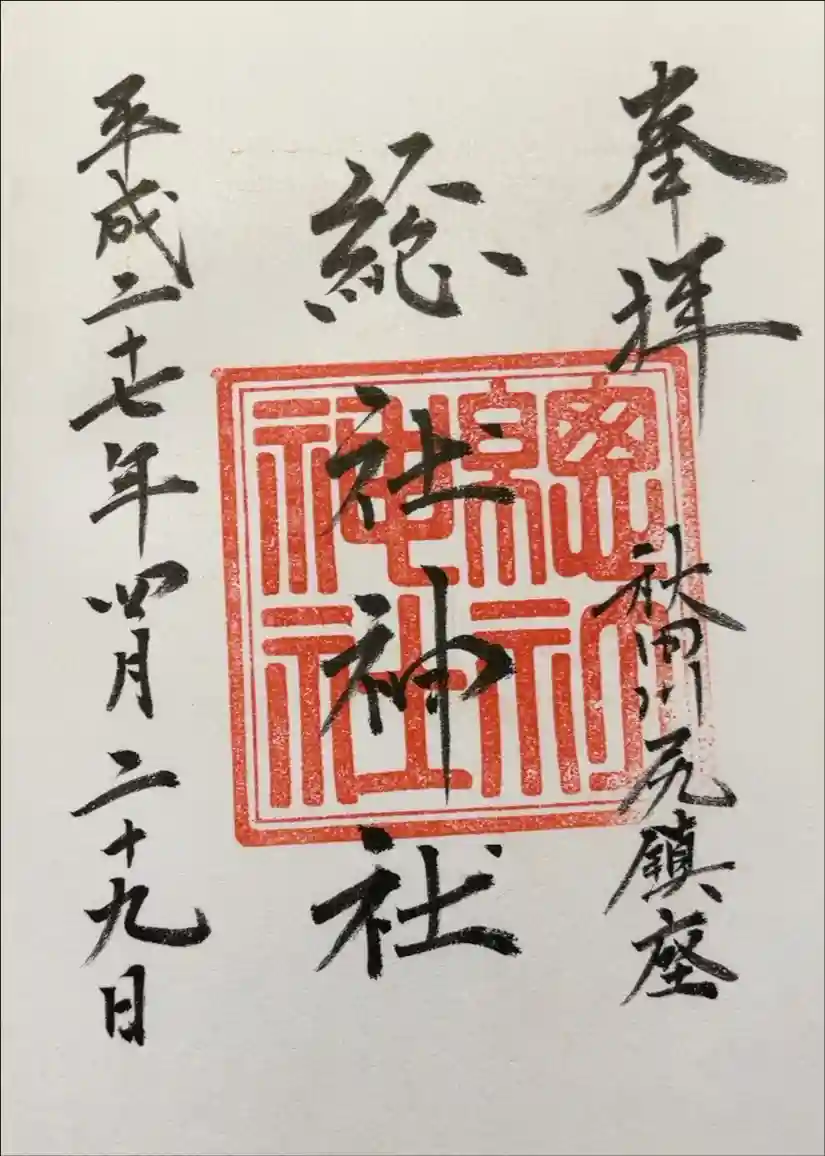 奉拝
秋田川尻鎮座
総社神社
總社神社
平成二十七年四月二十九日